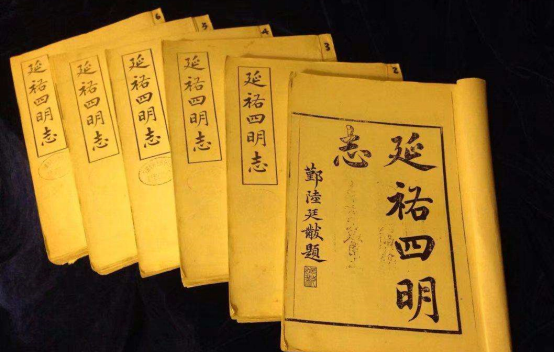 6
延祐四明志
5
延祐四明志
4
延祐四明志
3
延祐四明志
2
延祐四明志
延祐四明
志
鄞陸廷黻題